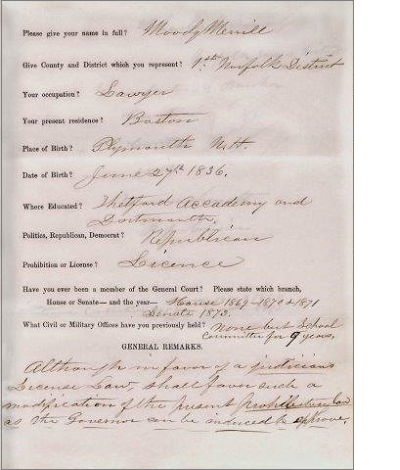 Please give your name in full? Moody Merrill
Give County and District which you represent? 1st Norfolk District
Your occupation? Lawyer
Your present residence? Boston
Place of Birth? Plymouth N.H.
Date of Birth? June 27th 1836.
Where Educated? Thetford Accademy and
Dartmouth.
Politics, Republican, Democrat? Republican
Prohibition or License? Licence
Have you ever been a member of the General Court? Please state which branch,
House or Senate—and the year— House 1869-1870 & 1871
Senate 1873.
What Civil or Military Offices have you previously held? None but School
Committee for 9 years,
GENERAL REMARKS.
Although in favor of a judicious
License Law, shall favor such a
modification of the present prohibitory law
as the Governor can be induced to approve.